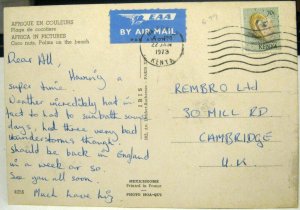 AFRIQUE EN COULEURS
Plage de cocotiers
AFRICA IN PICTURES
Coco nuts, Palms on the beach
EAA
BY AIR MAIL
PAR AVION
22 JAN
1973
KENYA
70c
KENYA
Dear All,
Having a
super time.
Weather incredibly hot in
fact to hot to sunbath some
days, had three very bad
thunderstorms though.
Should be back in England
in a week or so.
See you all soon
Much love
REMBRO LTD
30 MILL RD
CAMBRIDGE
U.K.
IRIS
MEXICHROME
Printed in France
PHOTO HOA-QUI